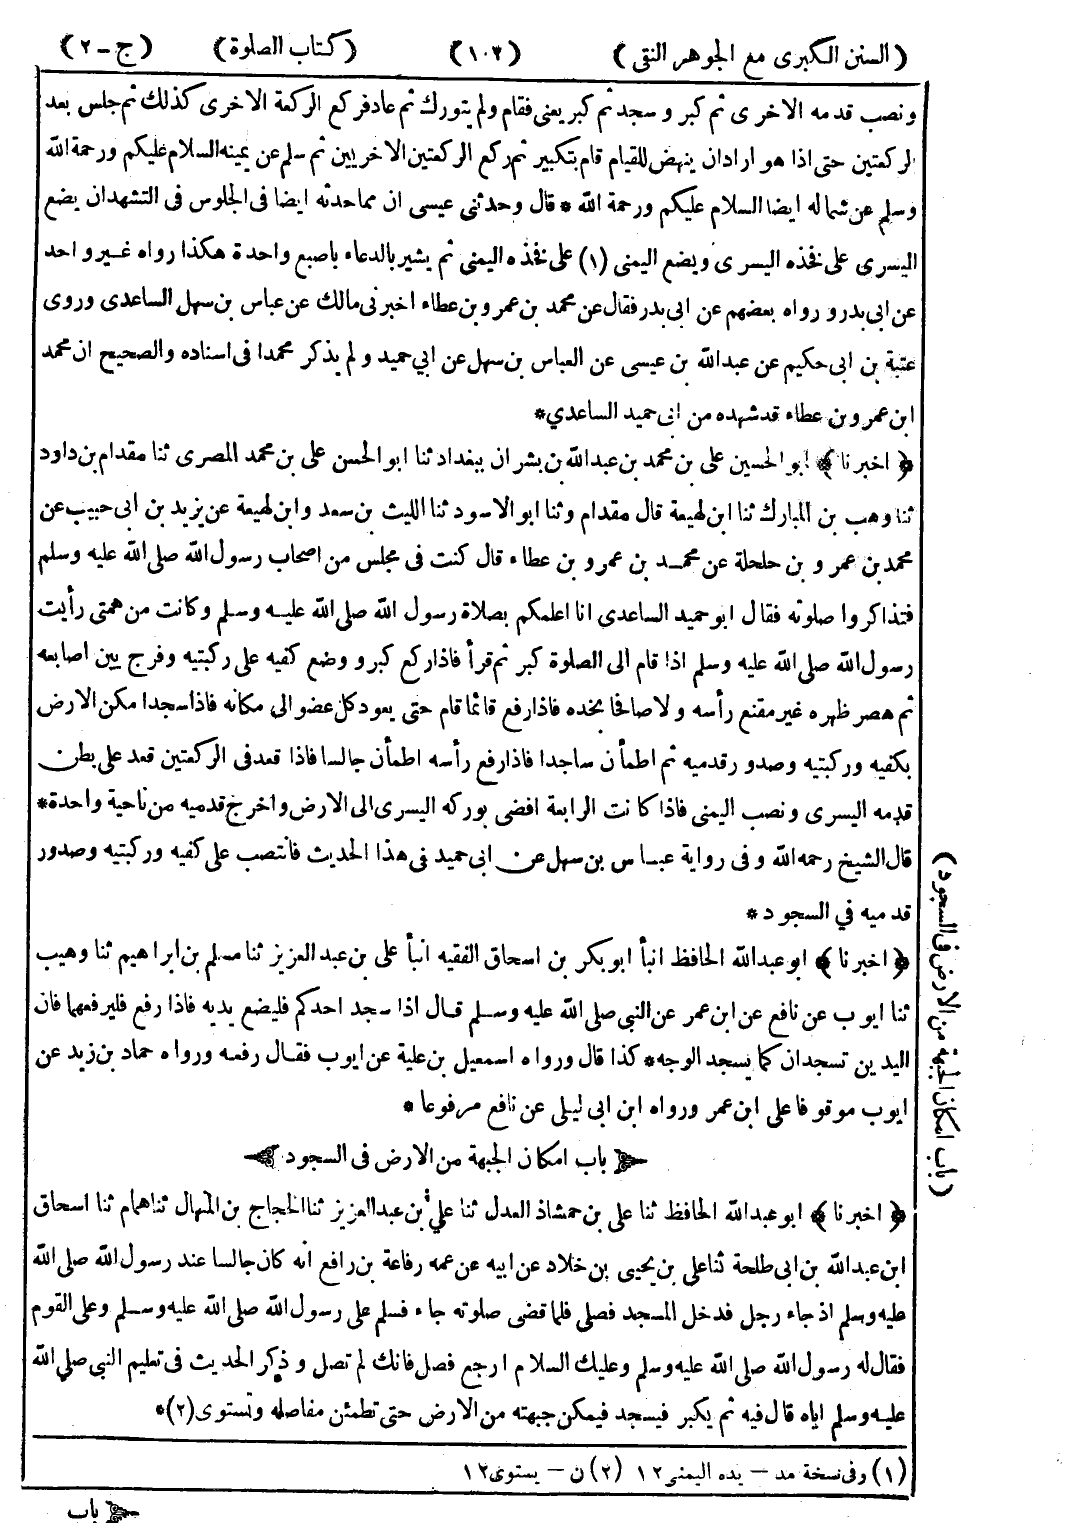 (السنن الكبرى مع الجوهر النقى) (١٠٢) (كتاب الصلوة) (ج-٢)
ونصب قدمه الاخرى ثم كبر وسجد ثم كبر يعنى فقام ولم يتورك ثم عاد فركع الركعة الاخرى كذلك ثم جلس بعد
الركعتين حتى اذا هو اراد ان ينهض للقيام قام بتكبير ثم ركع الركعتين الاخريين ثم سلم عن يمينه السلام عليكم ورحمة الله
وسلم عن شماله ايضا السلام عليكم ورحمة الله * قال وحدثنى عيسى ان مما حدثه ايضا فى الجلوس فى التشهد ان يضع
اليسرى على فخذه اليسرى ويضع اليمنى (١) على فخذه اليمنى ثم يشير بالدعاء باصبع واحدة هكذا رواه غير واحد
عن ابى بدر ورواه بعضهم عن ابى بدر فقال عن محمد بن عمرو بن عطاء اخبرنى مالك عن عباس بن سهل الساعدى وروى
عتبة بن ابى حكيم عن عبدالله بن عيسى عن العباس بن سهل عن ابي حميد ولم يذكر محمدا فى اسناده والصحيح ان محمد
ابن عمرو بن عطاء قد شهده من ابى حميد الساعدي*
﴿ اخبرنا ﴾ ابو الحسين على بن محمد بن عبدالله بن بشران ببغداد ثنا ابو الحسن على بن محمد المصرى ثنا مقدام بن داود
ثنا وهب بن المبارك ثنا ابن لهيعة قال مقدام وثنا ابو الاسود ثنا الليث بن سعد وابن لهيعة عن يزيد بن ابى حبيب عن
محمد بن عمرو بن حلحلة عن محمد بن عمرو بن عطاء قال كنت فى مجلس من اصحاب رسول الله صلى الله عليه وسلم
فتذاكروا صلوته فقال ابو حميد الساعدى انا اعلمكم بصلاة رسول الله صلى الله عليه وسلم وكانت من همتى رأيت
رسول الله صلى الله عليه وسلم اذا قام الى الصلوة كبر ثم قرأ فاذا ركع كبر ووضع كفيه على ركبتيه وفرج بين اصابعه
ثم هصر ظهره غير مقنع رأسه ولا صافحا بخده فاذا رفع قائما قام حتى يعود كل عضو الى مكانه فاذا سجد امكن الارض
بكفيه وركبتيه وصدور قدميه ثم اطمأن ساجدا فاذا رفع رأسه اطمأن جالسا فاذا قعد فى الركعتين قعد على بطن
قدمه اليسرى ونصب اليمنى فاذا كانت الرابعة افضى بوركه اليسرى الى الارض واخرج قدميه من ناحية واحدة*
قال الشيخ رحمه الله وفى رواية عباس بن سهل عن ابى حميد فى هذا الحديث فانتصب على كفيه وركبتيه وصدور
قدميه في السجود *
﴿ اخبرنا ﴾ ابو عبدالله الحافظ انبأ ابو بكر بن اسحاق الفقيه انبأ على بن عبد العزيز ثنا مسلم بن ابراهيم ثنا وهيب
ثنا ايوب عن نافع عن ابن عمر عن النبى صلى الله عليه وسلم قال اذا سجد احدكم فليضع يديه فاذا رفع فليرفعهما فان
اليدين تسجدان كما يسجد الوجه* كذا قال ورواه اسمعيل بن علية عن ايوب فقال رفعه ورواه حماد بن زيد عن
ايوب موقوفا على ابن عمر ورواه ابن ابى ليلى عن نافع مرفوعا *
باب امكان الجبهة من الارض فى السجود
﴿ اخبرنا ﴾ ابو عبدالله الحافظ ثنا على بن حمشاذ العدل ثنا علي بن عبد العزيز ثنا الحجاج بن المنهال ثنا همام ثنا اسحاق
ابن عبدالله بن ابى طلحة ثنا على بن يحيى بن خلاد عن ابيه عن عمه رفاعة بن رافع انه كان جالسا عند رسول الله صلى الله
عليه وسلم اذ جاء رجل فدخل المسجد فصلى فلما قضى صلوته جاء فسلم على رسول الله صلى الله عليه وسلم وعلى القوم
فقال له رسول الله صلى الله عليه وسلم وعليك السلام ارجع فصل فانك لم تصل وذكر الحديث فى تعليم النبى صلى الله
عليه وسلم اياه قال فيه ثم يكبر فيسجد فيمكن جبهته من الارض حتى تطمئن مفاصله وتستوى(٢)*
(١) وفى نسخة مد - يده اليمنى ١٢ (٢) ن - يستوى ١٢
باب
(باب امكان الجبهة من الارض فى السجود)